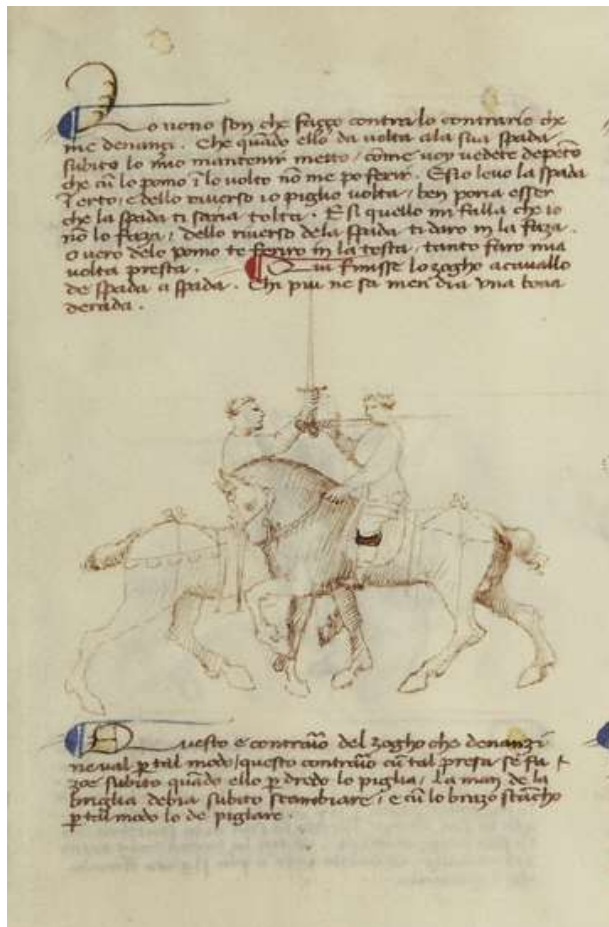 Io vono son che faço contra lo contrario che
me denançi. Che quãdo ello da volta ala sua spada
subito lo mio mantenir metto / come voy vedete depeto
che cũ lo pomo ĩ lo volto nõ me po ferir. E si o levo la spada
ĩ erto / e dello riverso io piglio volta / ben poria esser
che la spada ti saria tolta. E si quello mi falla che io
nõ lo faza / dello riverso dela spada ti daro in la faza.
o vero delo pomo te feriro in la testa, tanto faro mia
volta presta. Qui finisse lo zogho a cavallo
de spada a spada. Chi piu ne sa men dia vna bona
derada.
Questo e contrario del zogho che denanzi
ne val p tal modo / questo contrario cũ tal presa se fa
zoe subito quãdo ello p dredo lo piglia / la man de la
briglia debia subito scambiare / e cũ lo brazo stancho
p tal modo lo de piglare.